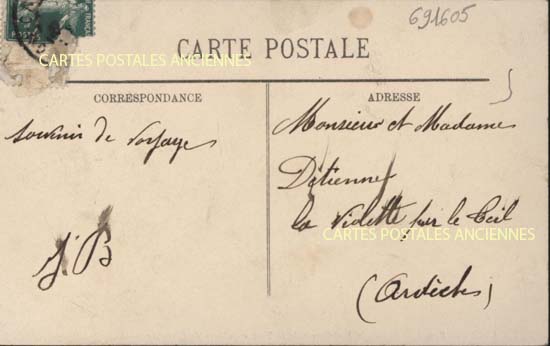 691605
CARTE POSTALE
CARTES POSTALES ANCIENNES
CORRESPONDANCE
souvenir de voyage
J B
ADRESSE
Monsieur et Madame
Détienne
la Violette par le Teil
CARTES POSTALES ANCIENNES
(Ardèche)